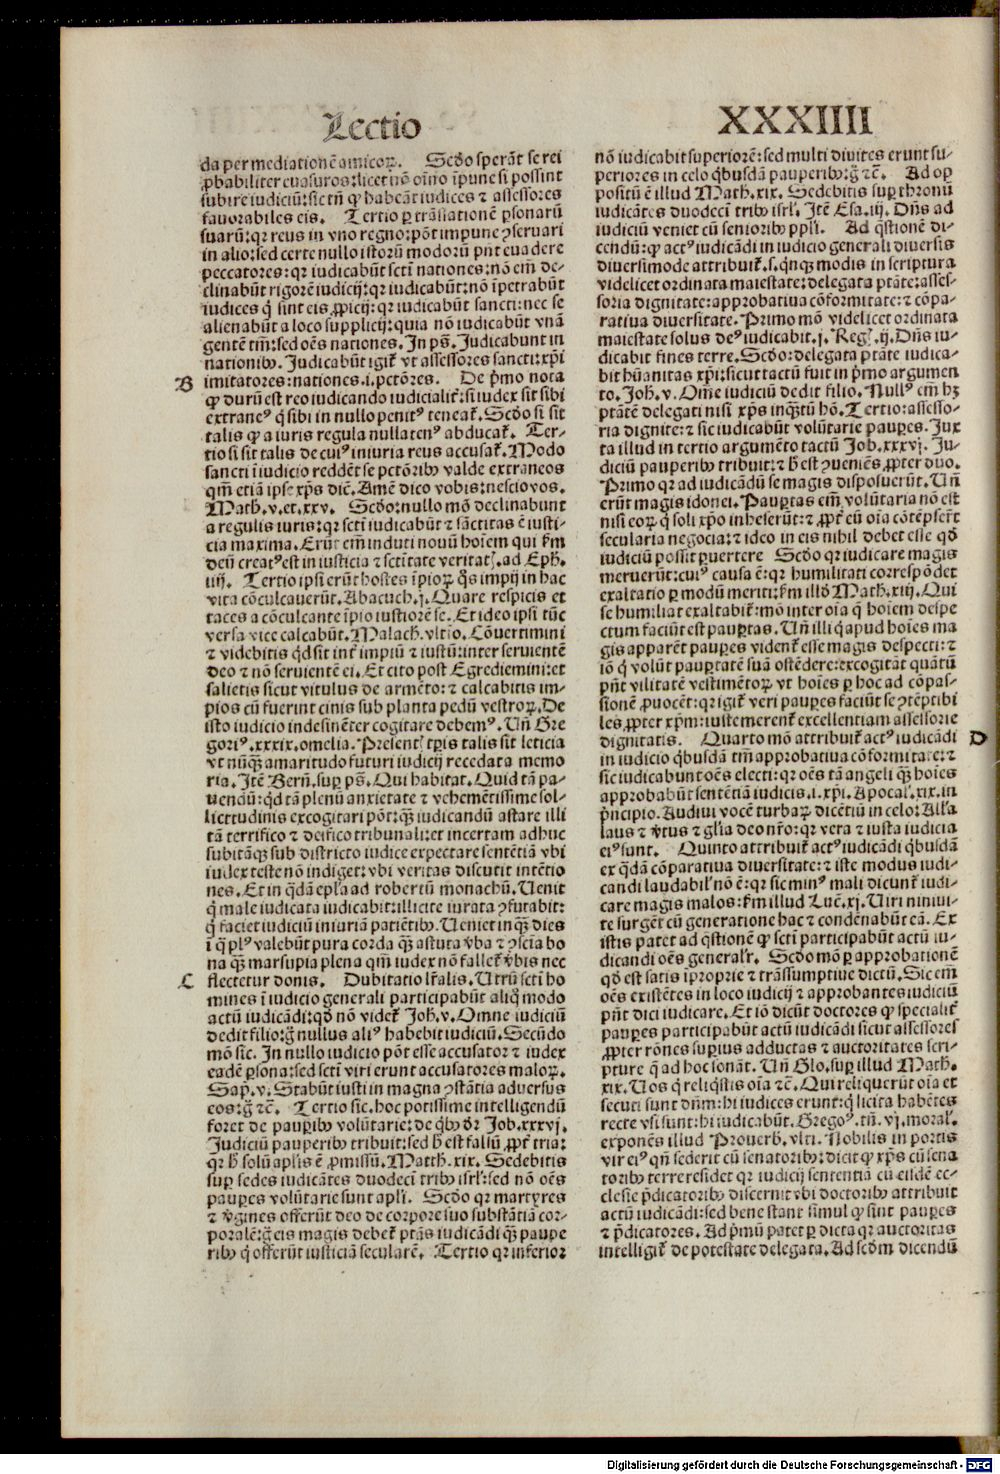 Lectio
XXXIIII
da per mediationē amicoꝝ. Scd̄o sperāt se rei
ꝓbabiliter euasuros: licet nō oīno īpune si possint
subire iudiciū: sic tn̄ ꝙ habeāt iudices ⁊ assessores
fauorabiles eis. Tertio ꝑ trāslationē ꝑsonarū
suarū: qꝛ reus in vno regno: pōt impune ꝯseruari
in alio: sed certe nullo istorū modorū pn̄t euadere
peccatores: qꝛ iudicabūt sctī nationes: nō em̄ de-
clinabūt rigorē iudicij: qꝛ iudicabūt: nō īpetrabūt
iudices q̇ sint eis ꝓpicij: qꝛ iudicabūt sancti: nec se
alienabūt a loco supplicij: quia nō iudicabūt vnā
gentē tm̄: sed oēs nationes. In ps̄. Judicabunt in
nationibꝫ. Judicabūt igit̄ vt assessores sancti: xp̄i
B
imitatores: nationes .i. pctōres. De p̄mo nota
ꝙ durū est reo iudicando iudicialit̄: si iudex sit sibi
extraneꝰ q̇ sibi in nullo penitꝰ teneat̄. Scd̄o si sit
talis ꝙ a iuris regula nullatenꝰ abducat̄. Ter-
tio si sit talis de cuiꝰ iniuria reus accusat̄. Modo
sancti ī iudicio reddēt se pctōribꝫ valde extraneos
qm̄ etiā ipse xp̄s dic̄. Amē dico vobis: nescio vos.
Math. v. et. xxv. Scd̄o: nullo mō declinabunt
a regulis iuris: qꝛ sctī iudicabūt ⁊ sāctitas ē iusti-
cia maxima. Erūt em̄ induti nouū hoīem qui s̄m
deū creatꝰ est in iusticia ⁊ sctītate veritatꝭ. ad Eph.
iiij. Tertio ipsi erūt hostes īpioꝝ q̄s impij in hac
vita cōculcauerūt. Abacuch. j. Quare respicis et
taces a cōculcante īpio iustiorē se. Et ideo ipsi tūc
versa vice calcabūt. Malach. vltīo. Cōuertimini
⁊ videbitis qd sit int̄ impiū ⁊ iustū: inter seruientē
deo ⁊ nō seruientē ei. Et cito post Egrediemini: et
salietis sicut vitulus de armēto: ⁊ calcabitis im-
pios cū fuerint cinis sub planta pedū vestroꝝ. De
isto iudicio indesinēter cogitare debemꝰ. Un̄ Gre
goriꝰ. xxxix. omelia. Presentꝭ tꝑis talis sit leticia
vt nūꝗ̄ amaritudo futuri iudicij recedat a memo
ria. Itē Bern̄. suꝑ ps̄. Qui habitat. Quid tā pa-
uendū: qd tā plenū anxietate ⁊ vehemētissime sol-
licitudinis excogitari pōt: ꝗ̄ iudicandū astare illi
tā terrifico ⁊ deifico tribunali: et incertam adhuc
subitāꝗ̄ sub districto iudice expectare sentētiā vbi
iudex teste nō indiget: vbi veritas discutit intētio
nes. Et in q̇dā epl̄a ad robertū monachū. Uenit
q̇ male iudicata iudicabit: illicite iurata ꝯfutabit:
q̇ faciet iudiciū iniuriā patiētibꝫ. Ueniet inꝗ̄ dies
ī q̇ plꝰ valebūt pura corda ꝗ̄ astuta v̄ba ⁊ ꝯsciā bo
na ꝗ̄ marsupia plena qm̄ iudex nō fallet̄ v̄bis nec
C
flectetur donis. Dubitatio lr̄alis. Utrū sctī ho
mines ī iudicio generali participabūt aliq̇ modo
actū iudicādi: qd̄ nō videt̄ Joh. v. Omne iudiciū
dedit filio: g̊ nullus aliꝰ habebit iudiciū. Secūdo
mō sic. In nullo iudicio pōt esse accusator ⁊ iudex
eadē ꝑsona: sed sctī viri erunt accusatores maloꝝ.
Sap̄. v. Stabūt iusti in magna ꝯstātia aduersus
eos: g̊ ⁊c̄. Tertio sic. hoc potissime intelligendū
foret de pauꝑibꝫ volūtarie: de q̇bꝫ d̄r Job. xxxvj.
Judiciū pauperibꝫ tribuit: sed h̄ est falsū ꝓpt̄ tria:
qꝛ h̄ solū aplis ē ꝓmissū. Matth. xix. Sedebitis
suꝑ sedes iudicātes duodeci tribꝫ isrl̄: sed nō oēs
pauꝑes volūtarie sunt apli. Scd̄o qꝛ martyres
⁊ v̄gines offerūt deo de corpore suo substātiā cor-
poralē: g̊ eis magis debet̄ ptās iudicādi ꝗ̄ paupe
ribꝫ q̇ offerūt iusticiā secularē. Tertio qꝛ inferior
nō iudicabit superiorē: sed multi diuites erunt su-
periores in celo q̇busdā pauperibꝫ: g̊ ⁊c̄. Ad op
positū ē illud Math. xix. Sedebitis suꝑ thronū
iudicātes duodeci tribꝫ isrl̄. Itē Esa. iij. Dn̄s ad
iudiciū veniet cū senioribꝫ ppl̄i. Ad q̄stionē di-
cendū: ꝙ actꝰ iudicādi in iudicio generali diuersis
diuersimode attribuit̄ .s. q̇nꝗ̄ modis in scriptura
videlicet ordinata maiestate: delegata ptāte: asses-
soria dignitate: approbatiua cōformitate: ⁊ cōpa-
ratiua diuersitate. Primo mō videlicet ordinata
maiestate solus deꝰ iudicabit. j. Regꝭ. ij. Dn̄s iu-
dicabit fines terre. Scd̄o: delegata ptāte iudica-
bit hūanitas xp̄i: sicut tactū fuit in p̄mo argumen
to. Joh. v. Om̄e iudiciū dedit filio. Nullꝰ em̄ hꝫ
ptātē delegati nisi xp̄s inꝗ̄tū hō. Tertio: assesso-
ria dignit̄e: ⁊ sic iudicabūt volūtarie pauꝑes. Jux
ta illud in tertio argumēto tactū Job. xxxvj. Ju-
diciū pauperibꝫ tribuit: ⁊ h̄ est ꝯueniēs ꝓpter duo.
Primo qꝛ ad iudicādū se magis disposuerūt. Un̄
erūt magis idonei. Pauꝑtas em̄ volūtaria nō est
nisi eoꝝ q̇ soli xp̄o inheserūt: ⁊ ꝓpt̄ eū oīa cōtēpserūt
secularia negocia: ⁊ ideo in eis nihil debet esse qd̄
iudiciū possit ꝑuertere Scd̄o qꝛ iudicare magis
meruerūt: cuiꝰ causa ē: qꝛ humilitati correspōdet
exaltatio ꝑ modū meriti: s̄m illd̄ Math. xiij. Qui
se humiliat exaltabit̄: mō inter oīa q̇ hoīem despe
ctum faciūt est pauꝑtas. Un̄ illi q̇ apud hoīes ma
gis apparēt pauꝑes vident̄ esse magis despecti: ⁊
iō q̇ volūt pauꝑtatē suā ostēdere: excogitāt quātū
pn̄t vilitatē vestimētoꝝ vt hoīes ꝑ hoc ad cōpas-
sionē ꝓuocēt: qꝛ igit̄ veri pauꝑes faciūt se ꝯtēptibi
les ꝓpter xp̄m: iuste merent̄ excellentiam assessorie
D
dignitatis. Quarto mō attribuit̄ actꝰ iudicādi
in iudicio q̇busdā tm̄ approbatiua cōformitate: ⁊
sic iudicabunt oēs electi: qꝛ oēs tā angeli ꝗ̄ hoīes
approbabūt sentētiā iudicis .i. xp̄i. Apocal̄. xix. in
p̄ncipio. Audiui vocē turbaꝝ dicētiū in celo: All̄a
laus ⁊ v̄tus ⁊ gl̄ia deo nr̄o: qꝛ vera ⁊ iusta iudicia
eiꝰ sunt. Quinto attribuit̄ actꝰ iudicādi q̇busdā
ex q̇dā cōparatiua diuersitate: ⁊ iste modus iudi-
candi laudabil̄ nō ē: qꝛ sic minꝰ mali dicunt̄ iudi-
care magis malos: s̄m illud Luc̄. xj. Uiri niniui-
te surgēt cū generatione hac ⁊ condēnabūt eā. Ex
istis patet ad q̄stionē ꝙ sctī participabūt actū iu-
dicandi oēs generalr̄. Scd̄o mō ꝑ approbationē
qd̄ est satis īproprie ⁊ trāssumptiue dictū. Sic em̄
oēs existētes in loco iudicij ⁊ approbantes iudiciū
pn̄t dici iudicare. Et iō dicūt doctores ꝙ specialit̄
pauꝑes participabūt actū iudicādi sicut assessores
ꝓpter rōnes suꝑius adductas ⁊ auctoritates scri-
pture q̄ ad hoc sonāt. Un̄ Glo. suꝑ illud Math.
xix. Uos q̇ reliq̇stis oīa ⁊c̄. Qui reliquerūt oīa et
secuti sunt dn̄m: hi iudices erunt: q̇ licita habētes
recte vsi sunt: hi iudicabūt. Gregoꝰ. tn̄. vj. moral̄.
exponēs illud Prouerb. vlti. Nobilis in portis
vir eiꝰ qn̄ sederit cū senatoribꝫ: dicit ꝙ xp̄s cū sena
toribꝫ terre residet qꝛ iudicij sententiā cū eisdē ec-
clesie p̄dicatoribꝫ discernit vbi doctoribꝫ attribuit
actū iudicādi: sed bene stant simul ꝙ sint pauꝑes
⁊ p̄dicatores. Ad p̄mū patet ꝑ dicta qꝛ auctoritas
intelligit̄ de potestate delegata. Ad scd̄m dicendū
Digitalisierung gefördert durch die Deutsche Forschungsgemeinschaft - DFG